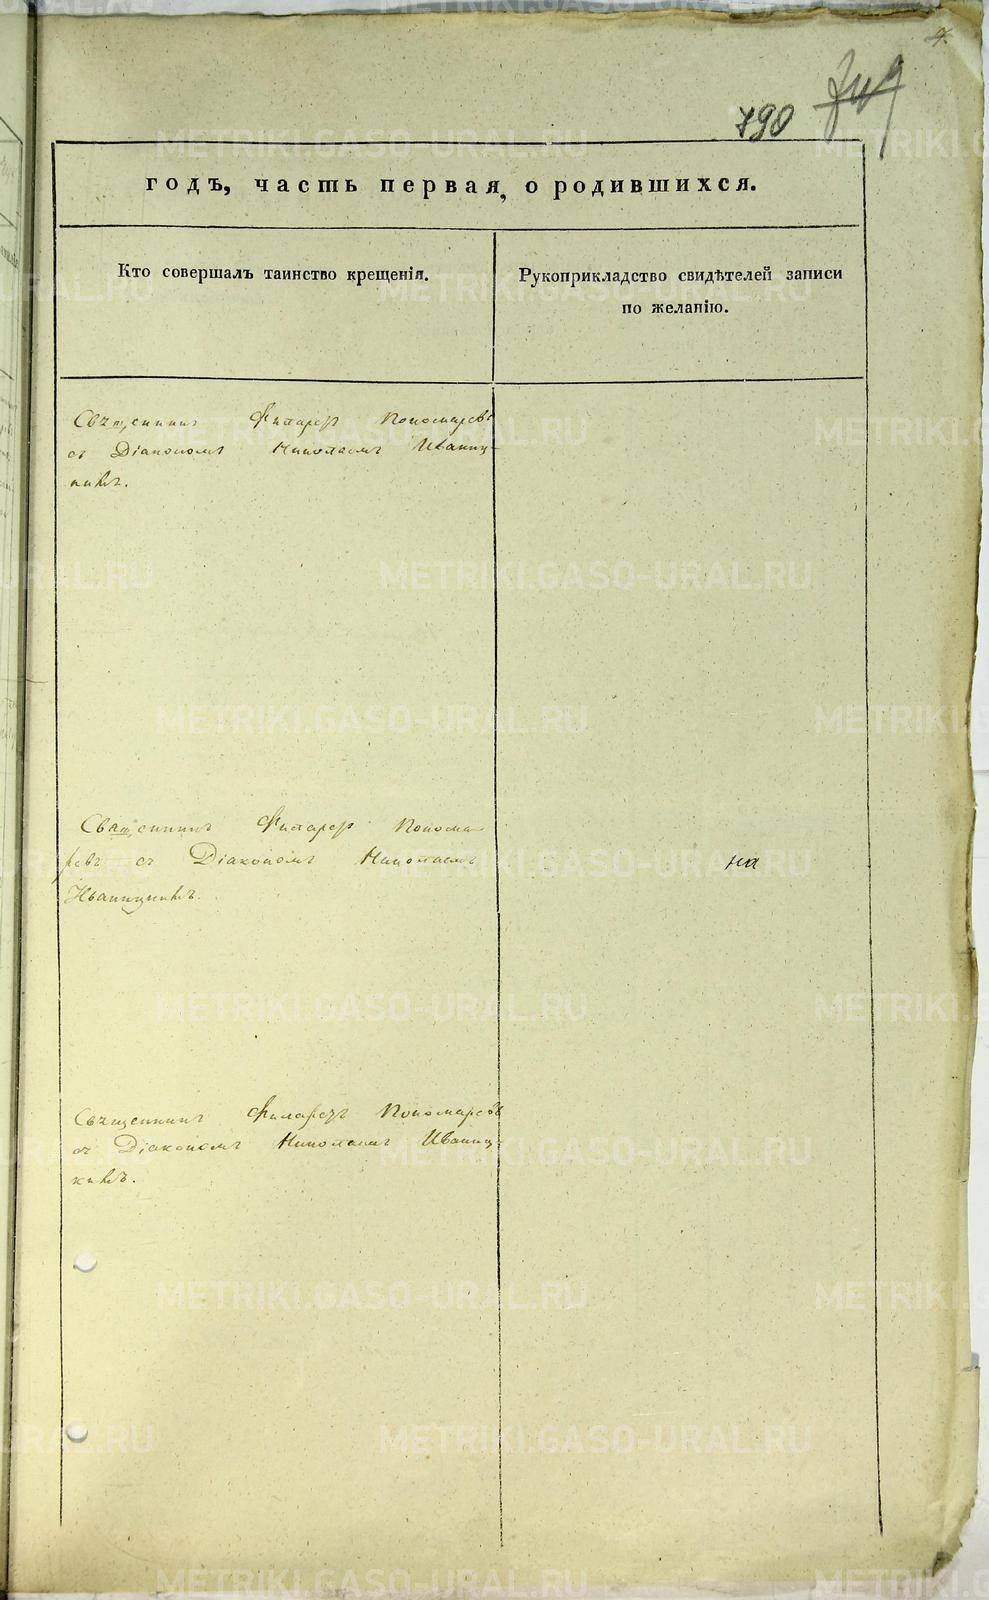 4.
790
годъ, часть первая, о родившихся.
Кто совершалъ таинство крещенія.
Рукоприкладство свидѣтелей записи
по желанію.
Священникъ Филаретъ Пономаревъ
съ Діакономъ Николаемъ Иваниц-
кимъ.
Священникъ Филаретъ Понома-
ревъ съ Діакономъ Николаемъ
Иваницкимъ.
на
Священникъ Филаретъ Пономаревъ
съ Діакономъ Николаемъ Иваниц-
кимъ.
METRIKI.GASO-URAL.RU